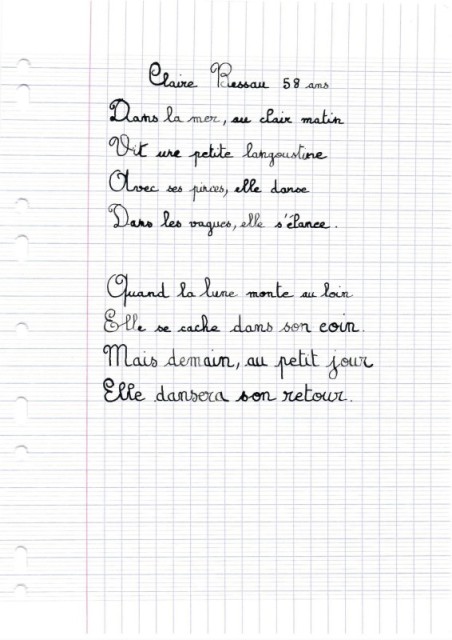 Claire Bessau 58 ans
Dans la mer, au clair matin
Vit une petite langoustine
Avec ses pinces, elle danse
Dans les vagues, elle s'élance.
Quand la lune monte au loin
Elle se cache dans son coin.
Mais demain, au petit jour
Elle dansera son retour.